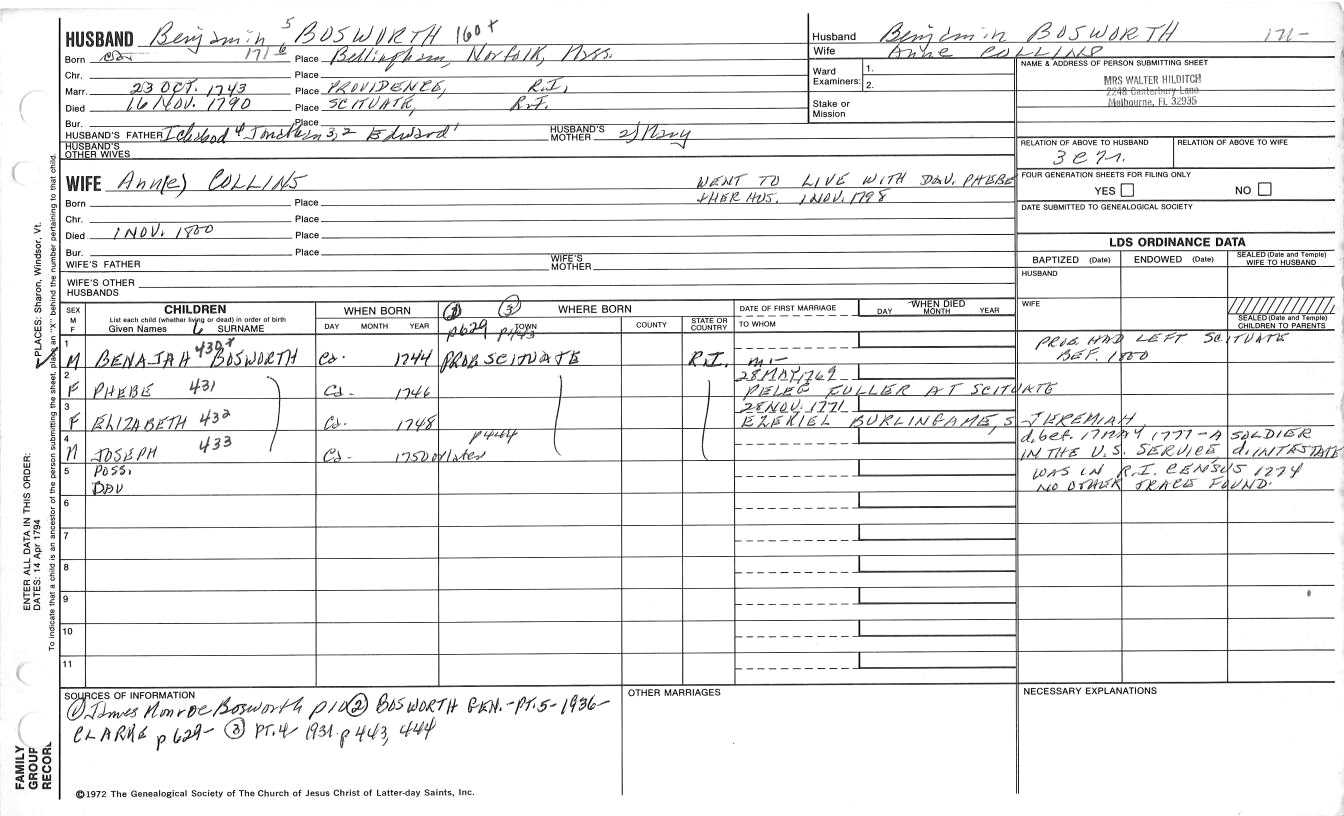 HUSBAND Benjamin 5 BOSWORTH 160+
Husband Benjamin BOSWORTH 171-
Wife Anne COLLINS
Born ca 1716 Place Bellingham, Norfolk, Mass.
Chr. Place
Marr. 23 OCT. 1743 Place PROVIDENCE, R.I.
Died 16 NOV. 1790 Place SCITUATE, R.I.
Bur. Place
HUSBAND'S FATHER Ichabod 4 Jonathan 3, 2 Edward 1 HUSBAND'S MOTHER 2) Mary
HUSBAND'S OTHER WIVES
Ward Examiners: 1.
2.
Stake or Mission
NAME & ADDRESS OF PERSON SUBMITTING SHEET
MRS WALTER HILDITCH
2248 Canterbury Lane
Melbourne, FL 32935
RELATION OF ABOVE TO HUSBAND RELATION OF ABOVE TO WIFE
FOUR GENERATION SHEETS FOR FILING ONLY
YES NO
DATE SUBMITTED TO GENEALOGICAL SOCIETY
WIFE Ann(e) COLLINS WENT TO LIVE WITH DAU. PHEBE
& HER HUS. 1 NOV. 1798
Born Place
Chr. Place
Died 1 NOV. 1800 Place
Bur. Place
WIFE'S FATHER WIFE'S MOTHER
WIFE'S OTHER HUSBANDS
LDS ORDINANCE DATA
BAPTIZED (Date) ENDOWED (Date) SEALED (Date and Temple) WIFE TO HUSBAND
HUSBAND
WIFE
SEALED (Date and Temple) CHILDREN TO PARENTS
SEX M F CHILDREN WHEN BORN WHERE BORN DATE OF FIRST MARRIAGE WHEN DIED
List each child (whether living or dead) in order of birth
Given Names 6 SURNAME DAY MONTH YEAR TOWN COUNTY STATE OR COUNTRY TO WHOM DAY MONTH YEAR
(1) (3)
p629 p443
1 M BENAJAH 430+ BOSWORTH Ca. 1744 PROB SCITUATE R.I. PROB. HAD LEFT SCITUATE
BEF. 1800
28 MAY, 1769
2 F PHEBE 431 Ca. 1746 PELEG FULLER AT SCITUATE
28 NOV. 1771
3 F ELIZABETH 432 Ca. 1748 EZEKIEL BURLINGAME, S JEREMIAH
4 M JOSEPH 433 Ca. 1750 or later p444 d. bef. 17 MAY 1777 - A SOLDIER
IN THE U.S. SERVICE d. INTESTATE
5 POSS.
DAU
WAS IN R.I. CENSUS 1774
NO OTHER TRACE FOUND.
6
7
8
9
10
11
SOURCES OF INFORMATION
(1) James Monroe Bosworth p10 (2) BOSWORTH GEN. - PT. 5 - 1936 -
CLARKE p 629 - (3) PT. 4 1931 p 443, 444
OTHER MARRIAGES
NECESSARY EXPLANATIONS
©1972 The Genealogical Society of The Church of Jesus Christ of Latter-day Saints, Inc.
FAMILY GROUP RECORD
ENTER ALL DATA IN THIS ORDER:
DATES: 14 Apr 1794
PLACES: Sharon, Windsor, Vt.
To indicate that a child is an ancestor of the person submitting the sheet, place an "X" behind the number pertaining to that child.